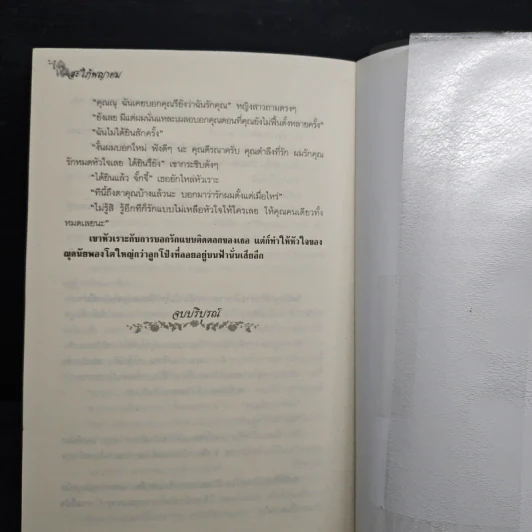 สะใภ้พญายม
"คุณณุ ฉันเคยบอกคุณรึยังว่าฉันรักคุณ" หญิงสาวถามตรงๆ
"ยังเลย มีแต่ผมนั่นแหละเผลอบอกคุณตอนที่คุณยังไม่ฟื้นตั้งหลายครั้ง"
"ฉันไม่ได้ยินสักครั้ง"
"งั้นผมบอกใหม่ ฟังดีๆ นะ คุณดีรณาครับ คุณตำลึงที่รัก ผมรักคุณ
รักหมดหัวใจเลย ได้ยินรึยัง" เขากระซิบดังๆ
"ได้ยินแล้ว จั๊กจี้" เธอยักไหล่หัวเราะ
"ทีนี้ถึงตาคุณบ้างแล้วนะ บอกมาว่ารักผมตั้งแต่เมื่อไหร่"
"ไม่รู้สิ รู้อีกทีก็รักแบบไม่เหลือหัวใจให้ใครเลย ให้คุณคนเดียวทั้ง
หมดเลยนะ"
เขาหัวเราะกับการบอกรักแบบติดตลกของเธอ แต่ก็ทำให้หัวใจของ
ณุดนัยพองโตใหญ่กว่าลูกโป่งที่ลอยอยู่บนฟ้านั่นเสียอีก
จบบริบูรณ์